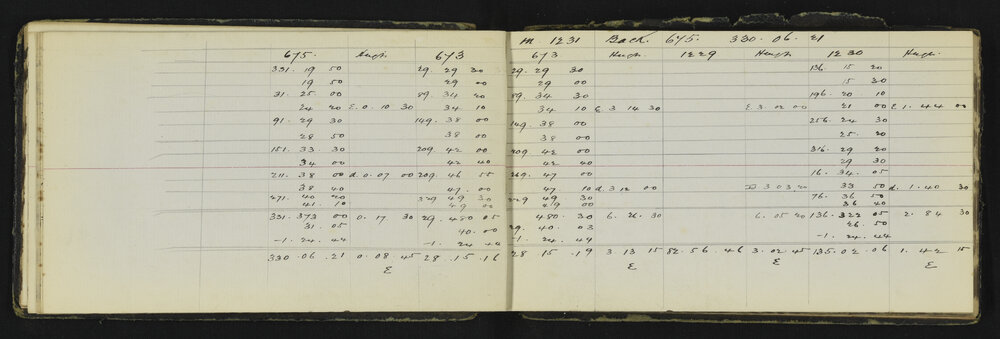 m. 1231 Back 675. 330. 06. 21
675. Heigh. 673 673 Heigh 1229 Heigh. 1230 Heigh.
331. 19 50 29. 29 30 29. 29 30 136. 15 20
19 50 29 00 29 00 15 30
31. 25 00 89. 34 20 89. 34 30 196. 20 10
24 20 E. 0. 10 30 34 10 34 10 E. 3 14 30 E. 3. 02 00 21 00 E 1. 44 00
91. 29 30 149. 38 00 149. 38 00 256. 24 30
28 50 38 00 38 00 25. 20
151. 33 30 209. 42 00 209. 42 00 316. 29 20
34 00 42 40 42 40 29 30
211. 38 00 d. 0. 07 00 209. 46 55 269. 47 00 16. 34 05
38 40 47. 00 47. 10 d. 3 12 00 D 3 03 20 33 50 d. 1. 40 30
271. 40 20 329 49 30 329 49 30 76. 36 50
41. 10 49 00 49 00 36 40
331. 373 00 0. 17. 30 29. 480 05 480. 30 6. 26. 30 6. 05 20 136. 322 05 2. 84 30
31. 05 40. 00 29. 40 03 26. 50
-1. 24. 44 -1. 24 44 -1. 24. 44 -1. 24. 44
330. 06. 21 0. 08. 45 28. 15. 16 28 15 .19 3. 13 15 82. 56. 46 3. 02. 45 135. 02. 06 1. 42 15
E E E E